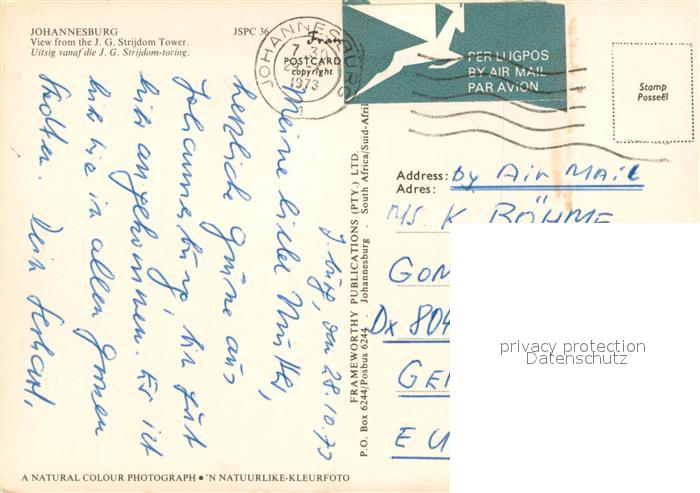 JOHANNESBURG
View from the J. G. Strijdom Tower.
Uitsig vanaf die J. G. Strijdom-toring.
JSPC 36
Fram
POSTCARD
copyright
JOHANNESBURG
7 30
1973
PER LUGPOS
BY AIR MAIL
PAR AVION
Stamp
Posseël
J'burg, den 28.10.73
Meine liebe Mutter,
herzliche Grüße aus
Johannesburg, bin gut
hier angekommen. Es ist
hier wie in allen großen
Städten. Dein Gerhard.
FRAMEWORTHY PUBLICATIONS (PTY.) LTD.
P.O. Box 6244/Posbus 6244 . Johannesburg . South Africa/Suid-Afri
Address: by AIR MAIL
Adres:
MS. K. BÖHME
GOM
Dx 804
GE
EU
privacy protection
Datenschutz
A NATURAL COLOUR PHOTOGRAPH ● 'N NATUURLIKE-KLEURFOTO